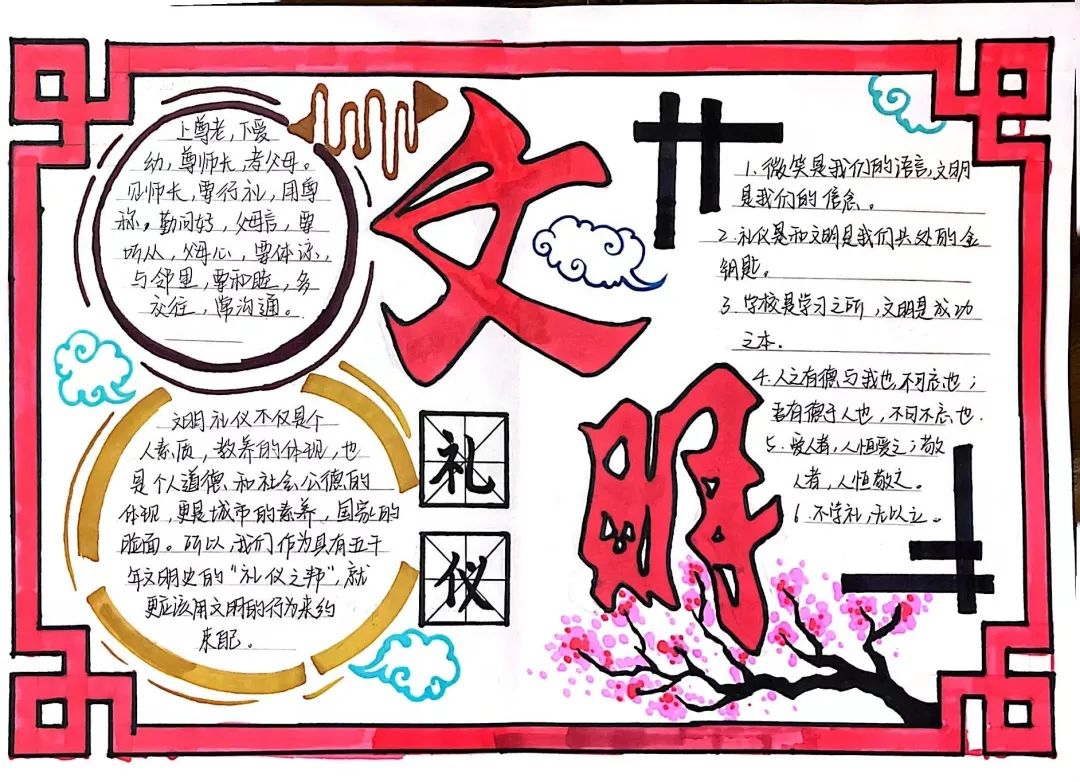 上尊老，下爱
幼，尊师长，孝父母。
见师长，要行礼，用尊
称。勤问好，父母言，要
听从，父母心，要体谅，
与邻里，要和睦，多
交往，常沟通。
文明
文明礼仪不仅是个
人素质，教养的体现，也
是个人道德和社会公德的
体现，更是城市的素养，国家的
脸面。所以，我们作为具有五千
年文明史的“礼仪之邦”，就
更应该用文明的行为来约
束自己。
礼
仪
1.微笑是我们的语言，文明
是我们的信念。
2.礼仪是和文明是我们共处的金
钥匙。
3.学校是学习之所，文明是成功
之本。
4.人之有德与我也，不可忘也；
吾有德于人也，不可不忘也.
5.爱人者，人恒爱之；敬
人者，人恒敬之。
6.不学礼，无以立。